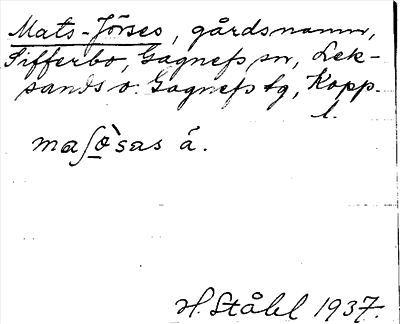 Mats-Jörses, gårdsnamn,
Tifferbo, Gagnefs sn, Lek-
sands o. Gagnefs tg, Kopp.
l.
maʃò̱sas å.
H. Ståhl 1937.